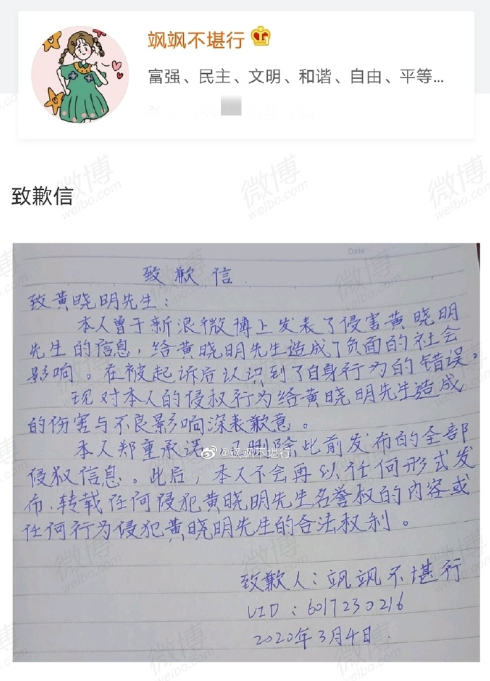 飒飒不堪行
富强、民主、文明、和谐、自由、平等...
致歉信
Date
致歉信
致黄晓明先生：
本人曾于新浪微博上发表了侵害黄晓明
先生的信息，给黄晓明先生造成了负面的社会
影响。在被起诉后认识到了自身行为的错误。
现对本人的侵权行为给黄晓明先生造成
的伤害与不良影响深表歉意。
本人郑重承诺，已删除此前发布的全部
侵权信息。此后，本人不会再以任何形式发
布、转载任何侵犯黄晓明先生名誉权的内容或
任何行为侵犯黄晓明先生的各法权利。
致歉人：飒飒不堪行
UID：6017230216
2020年3月4日.
@飒飒不堪行
微博
weibo.com